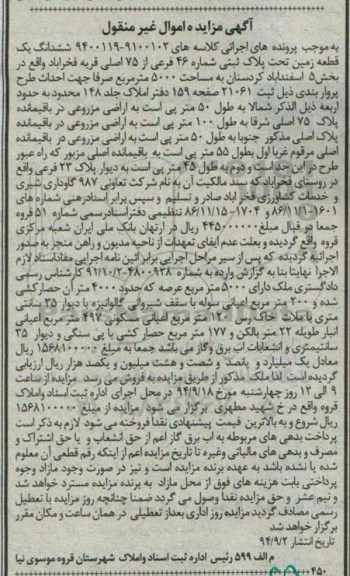 آگهی مزایده اموال غیر منقول
به موجب پرونده های اجرائی کلاسه های 9100102-9400119 ششدانگ یک
قطعه زمین تحت پلاک ثبتی شماره 46 فرعی از 75 اصلی قریه فخراباد واقع در
بخش 5 اسفنداباد کردستان به مساحت 5000 مترمربع صرفا جهت احداث طرح
پروار بندی ذیل ثبت 21061 صفحه 159 دفتر املاک جلد 148 محدود به حدود
اربعه ذیل الذکر شمالا به طول 50 متر پی است به اراضی مزروعی در باقیمانده
پلاک 75 اصلی شرقا به طول 100 متر پی است به اراضی مزروعی در باقیمانده
پلاک اصلی مذکور جنوبا به طول 50 متر پی است به اراضی مزروعی در باقیمانده
اصلی مرقوم غربا اول بطول 55 متر پی است به باقیمانده اصلی مزبور که راه عبور
طرح در این حد است و دوم به طول 45 متر پی است به دیوار پلاک 23 فرعی واقع
در روستای فخرآباد که سند مالکیت آن به نام شرکت تعاونی 987 گاوداری شیری
و خدمات کشاورزی فخر اباد صادر و تسلیم و سپس برابر اسنادرهنی شماره های
1601-86/11/1 و 1704-86/11/15 تنظیمی دفتراسنادرسمی شماره 51 قروه
جمعا در قبال مبلغ 445000000 ریال در ارتهان بانک ملی ایران شعبه مرکزی
قروه واقع گردیده و بعلت عدم ایفای تعهدات از ناحیه مدیون و راهن منجر به صدور
اجرائیه گردیده که پس از سیر مراحل اجرایی برابر ائین نامه اجرایی مفاداسناد لازم
الاجرا نهایتا بنا به گزارش وارده به شماره 4800938-91/10/2 کارشناس رسمی
دادگستری ملک دارای 5000 متر مربع عرصه که حدود 4000 متر آن حصار کشی
شده و 200 متر مربع اعیانی سوله با سقف شیروانی گالوانیزه با دیوار 35 سانتی
متری با ملات خاک رس 120 متر مربع اعیانی مسکونی 497 متر مربع اعیانی
انبار طویله 22 متر بالکن و 177 متر مربع حصار کشی با پی سنگی و دیوار 35
سانتیمتری و انشعابات اب برق وگاز می باشد جمعا به مبلغ 1568100000 ریال
معادل یک میلیارد و پانصد و شصت و هشت میلیون و یکصد هزار ریال ارزیابی
گردیده است لذا ملک مذکور از طریق مزایده به فروش می رسد مزایده از ساعت
9 الی 12 روز چهارشنبه مورخ 94/9/18 در محل اجرای اداره ثبت اسناد واملاک
قروه واقع در خ شهید مطهری برگزار می شود مزایده از مبلغ 1568100000
ریال شروع و به بالاترین قیمت پیشنهادی نقدا فروخته می شود لازم به ذکر است
پرداخت بدهی های مربوطه به اب برق گاز اعم از حق انشعاب و یا حق اشتراک و
مصرف و بدهی های مالیاتی وغیره تا تاریخ مزایده اعم از اینکه رقم قطعی آن معلوم
شده یا نشده باشد به عهده برنده مزایده است و نیز در صورت وجود مازاد وجوه
پرداختی بابت هزینه های فوق از محل مازاد به برنده مزایده مسترد خواهد شد
و نیم عشر و حق مزایده نقدا وصول می گردد ضمنا چنانچه روز مزایده با تعطیل
رسمی مصادف گردید مزایده روز اداری بعداز تعطیلی در همان ساعت و مکان مقرر
برگزار خواهد شد
تاریخ انتشار 94/9/2
م الف 599 رئیس اداره ثبت اسناد واملاک شهرستان قروه موسوی نیا
450